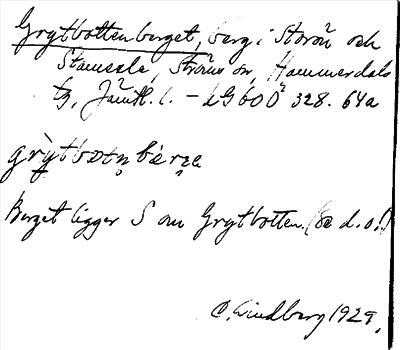 Grytbottenberget, berg i Storön och
Stamsele, Ströms sn, Hammerdals
tg, Jämtl. l. – kGbOÖ 328. 64a
grỳtbɔtn̥bèrɳe
Berget ligger S om Grytbotten. (Se d. o.!)
O. Lindberg 1929.